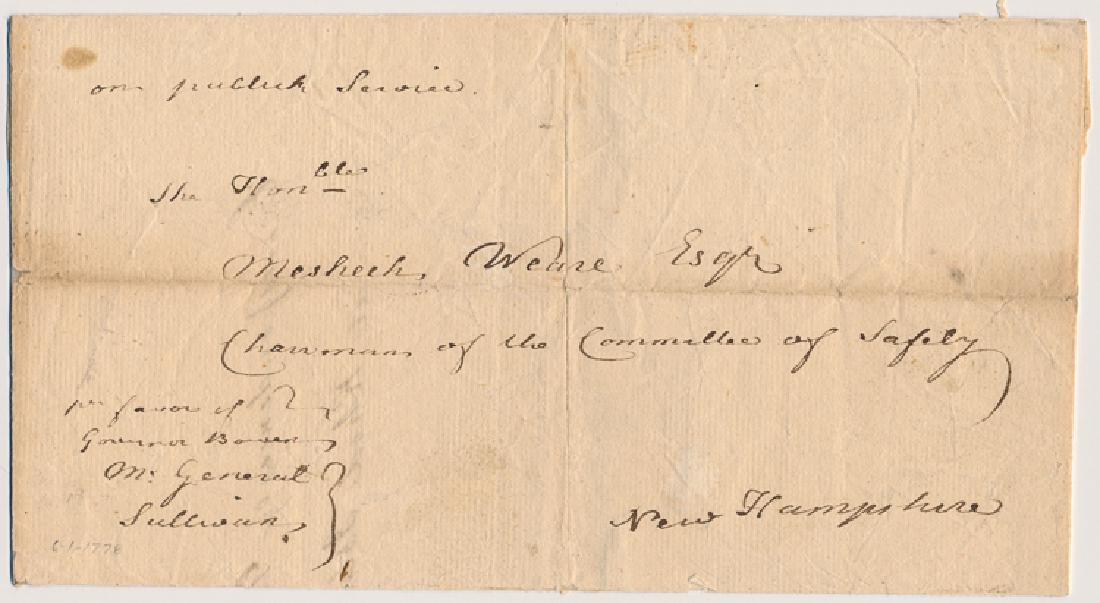 on publick Service.
The Honble
Meshech Weare Esqr
Chairman of the Committee of Safety
New Hampshire
pr favor of
Governor Bowen
Mr General
Sullivan
6-1-1778